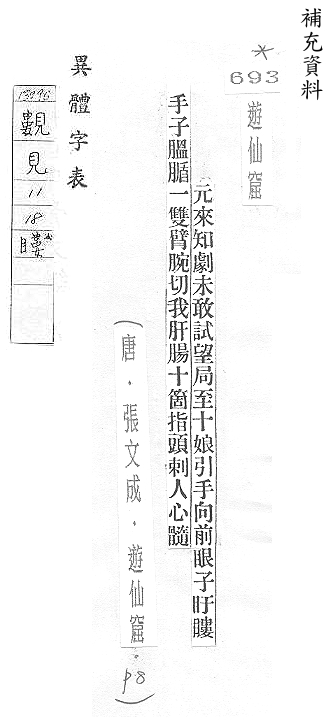 補充資料
*
693
遊仙窟
元來知劇未敢試望局至十娘引手向前眼子盱瞜
手子膃腯一雙臂腕切我肝腸十箇指頭刺人心髓
（唐．張文成．遊仙窟．p8）
異體字表
見
11
18
瞜